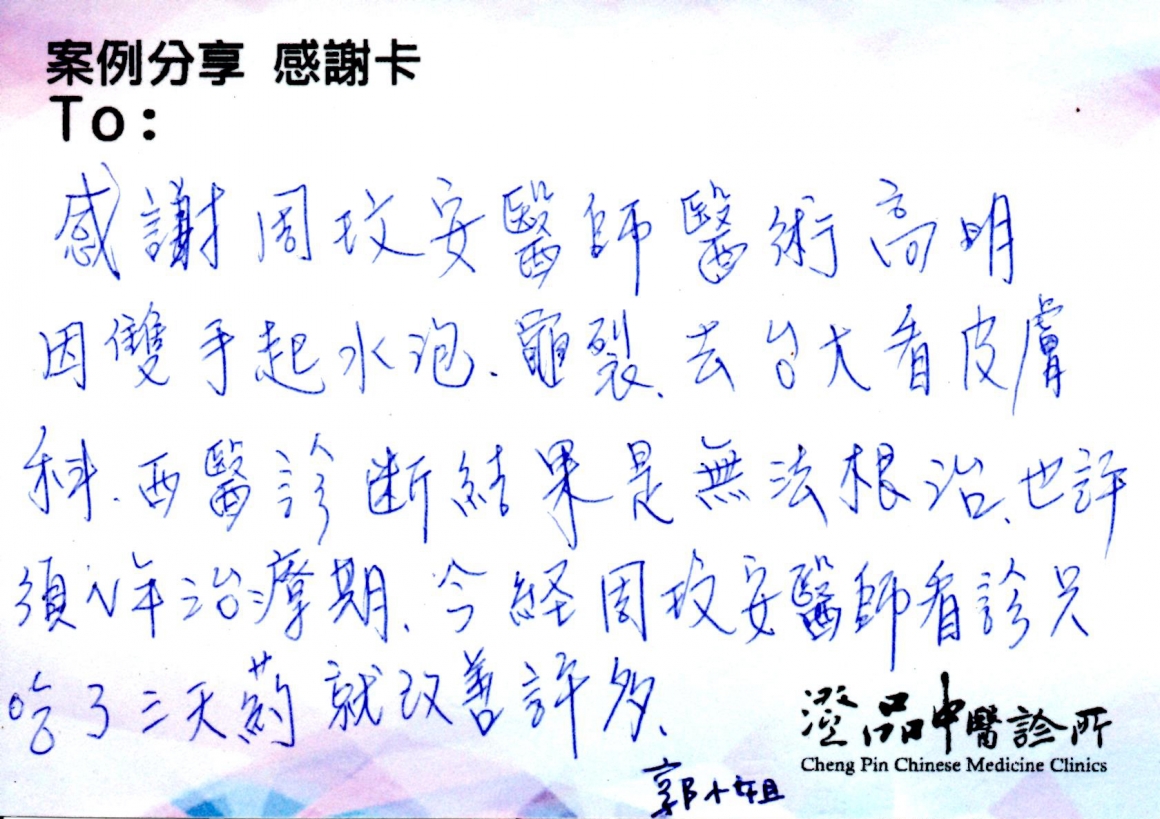 案例分享 感謝卡
To:
感謝周玟安醫師醫術高明
因雙手起水泡、龜裂、去台大看皮膚
科、西醫診斷結果是無法根治、也許
須年治療期、今経周玟安醫師看診只
吃了三天葯就改善許多、
郭小姐
澄品中醫診所
Cheng Pin Chinese Medicine Clinics